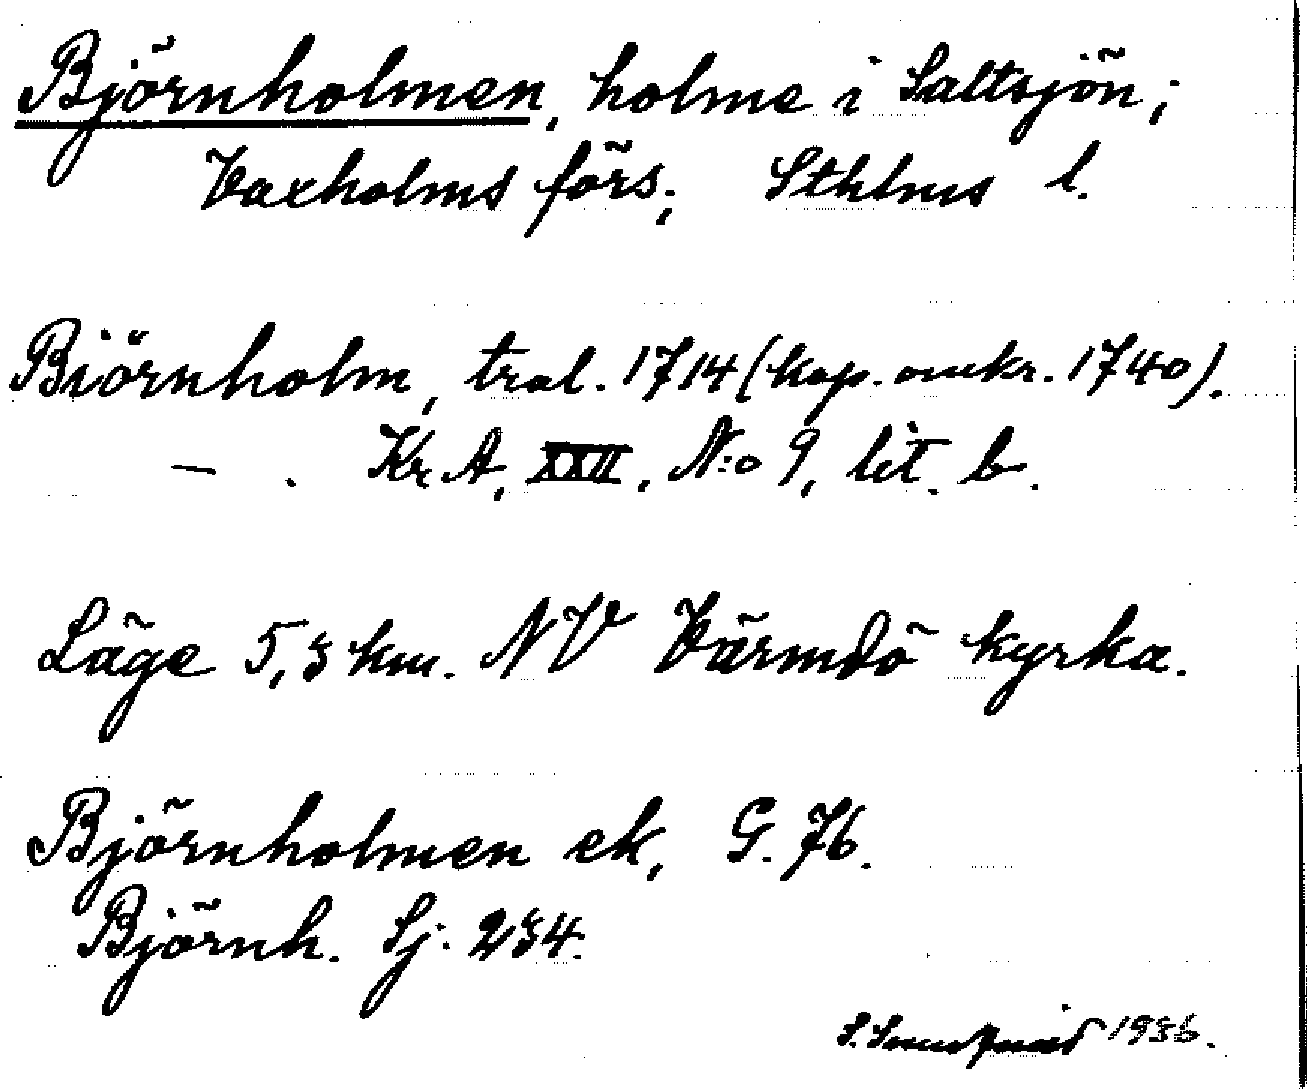 Björnholmen, holme i Saltsjön;
Vaxholms förs; Sthlms l.
Biörnholm, tral. 1714 (kop. omkr. 1740).
— . Kr. A, XXII, N:o 9, lit. b.
Läge 5,3 km. NV Värmdö kyrka.
Björnholmen ek, G. 76.
Björnh. Sj. 234.
S. 1936.